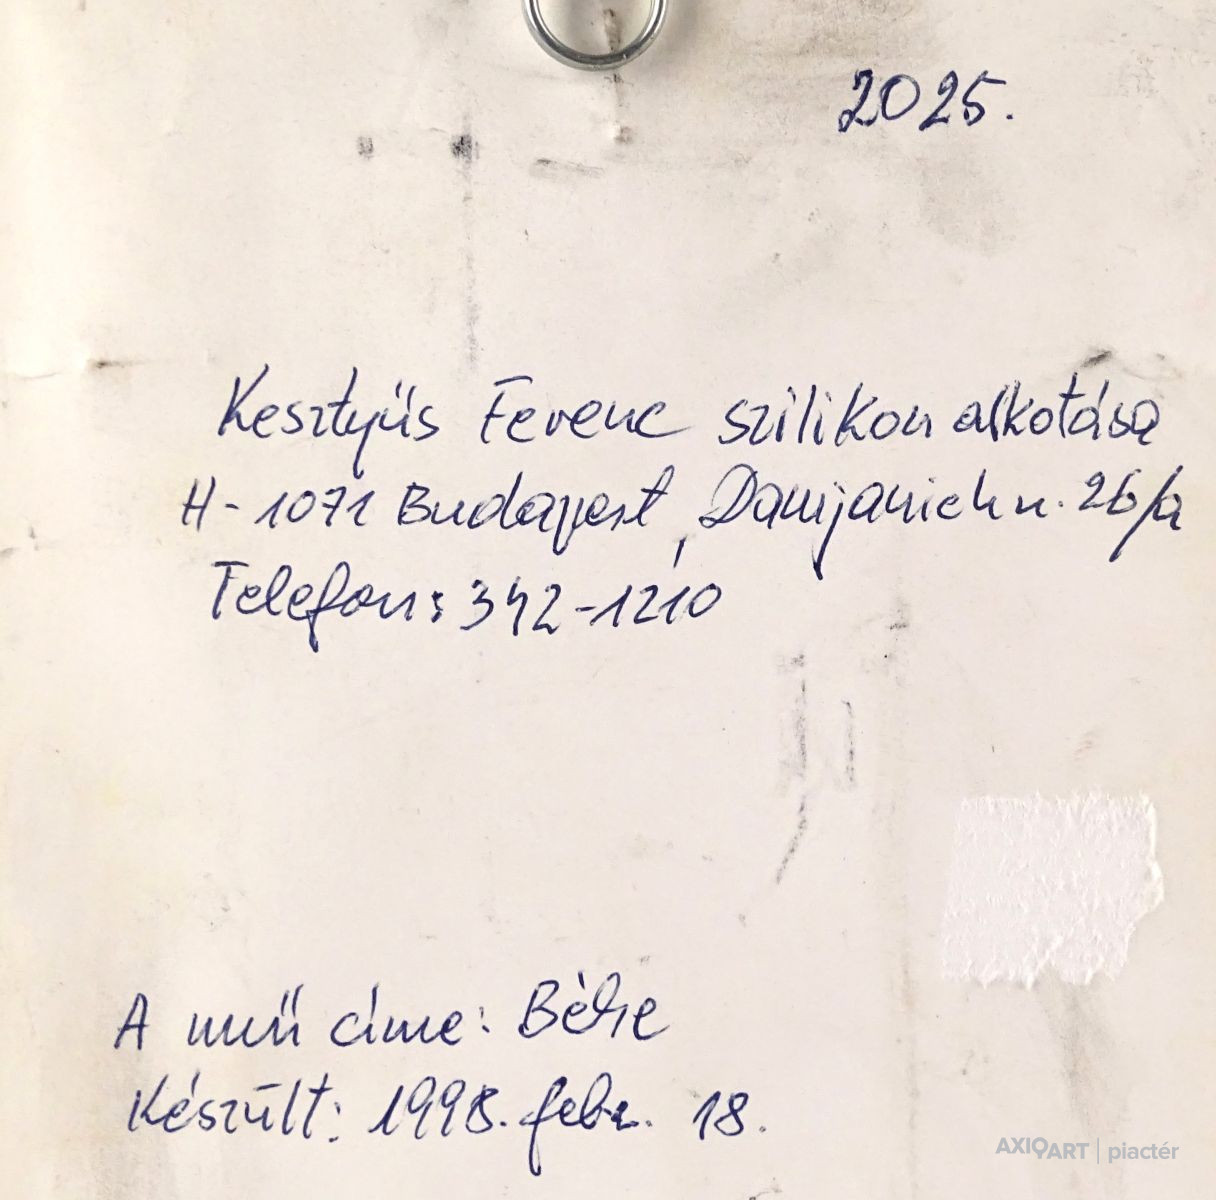 2025.
Kesztyűs Ferenc szilikon alkotása
H-1071 Budapest, Damjanich u. 26/a
Telefon: 342-1210
A mű címe: Béke
Készült: 1998. febr. 18.
AXIOART | piactér